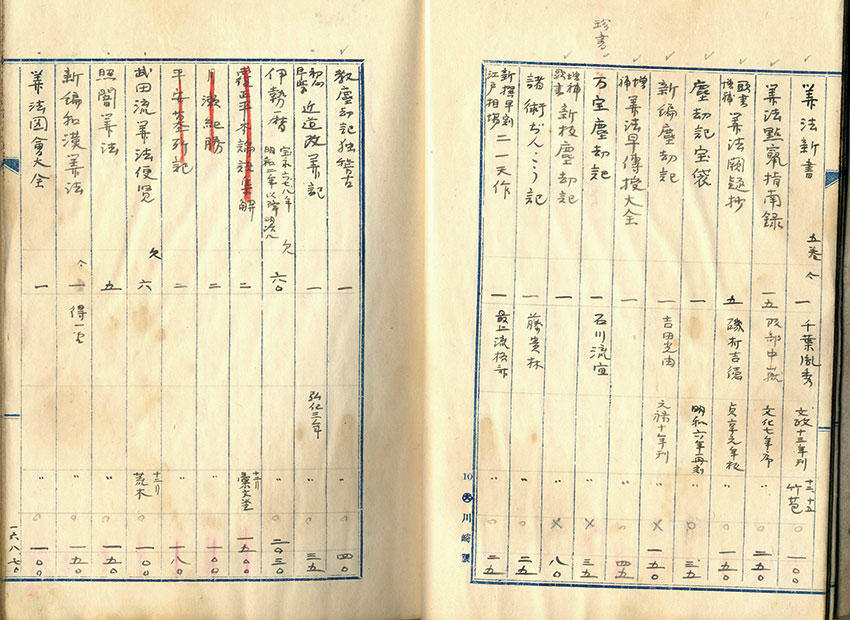 算法新書 五巻 一 千葉胤秀 文政十三年刊 十二、十五 竹苞 ○ 一〇〇
算法點竄指南録 一五 文化七年序 〃 ○ 二五〇
頭書 増補 算法闕疑抄 五 磯村吉徳 貞享元年板 〃 ○ 一五〇
塵劫記宝袋 一 明和六年再刻 〃 ○ 三五
新編塵劫記 一 吉田光由 元禄十年刊 〃 × 一五〇
増補 算法早傳授大全 一 〃 ○ 四五
珍書 万宝塵劫記 一 石川流宣 〃 × 三五
増補 頭書 新板塵劫記 一 〃 × 八〇
諸術ぢんこう記 一 藤貴林 〃 ○ 二五
新撰早割 江戸相場 二一天作 一 最上流 〃 ○ 二五
10 川崎製
塵劫記独稽古 一 〃 ○ 四〇
近道改算記 一 弘化三年 〃 ○ 三五
伊勢暦 宝永六七八年 明和二年以降明治八 欠 六〇 〃 ○ 二〇三〇
集解 二 十二、八 彙文堂 ○ 一五〇
月瀬紀勝 二 〃 ○ 一〇〇
平安墓所記 二 〃 ○ 一八〇
武田流算法便覧 欠 六 十二、八 荒木 ○ 一〇〇
照闇算法 五 〃 ○ 一五〇
新編和漢算法 一 得一 〃 ○ 一五〇
算法図會大全 一 〃 ○ 一〇〇
一六八七〇